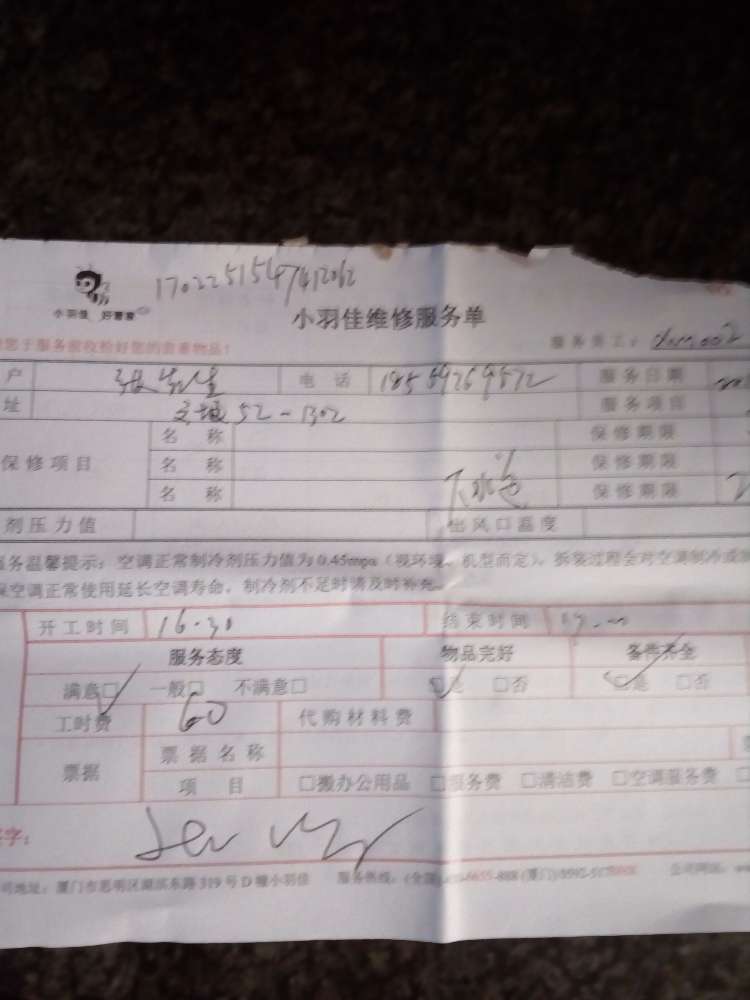 小羽佳 好管家
小羽佳维修服务单
服务员工:
户 张先生 电话 18559269572 服务日期
址 52-1302 服务项目
保修项目 名称 保修期限
名称 保修期限
名称 下水 保修期限
剂压力值 出风口温度
务温馨提示:空调正常制冷剂压力值为0.45mpa(视环境、机型而定),拆装过程会对空调制冷
保空调正常使用延长空调寿命,制冷剂不足时请及时补充。
开工时间 16.30 结束时间
服务态度 物品完好 备件齐全
满意□ 一般□ 不满意□ □是 □否 □是 □否
工时费 60 代购材料费
票据 票据名称
项目 □搬办公用品 □服务费 □清洁费 □空调服务费
字:
司地址:厦门市思明区湖滨东路319号D幢小羽佳 服务热线: